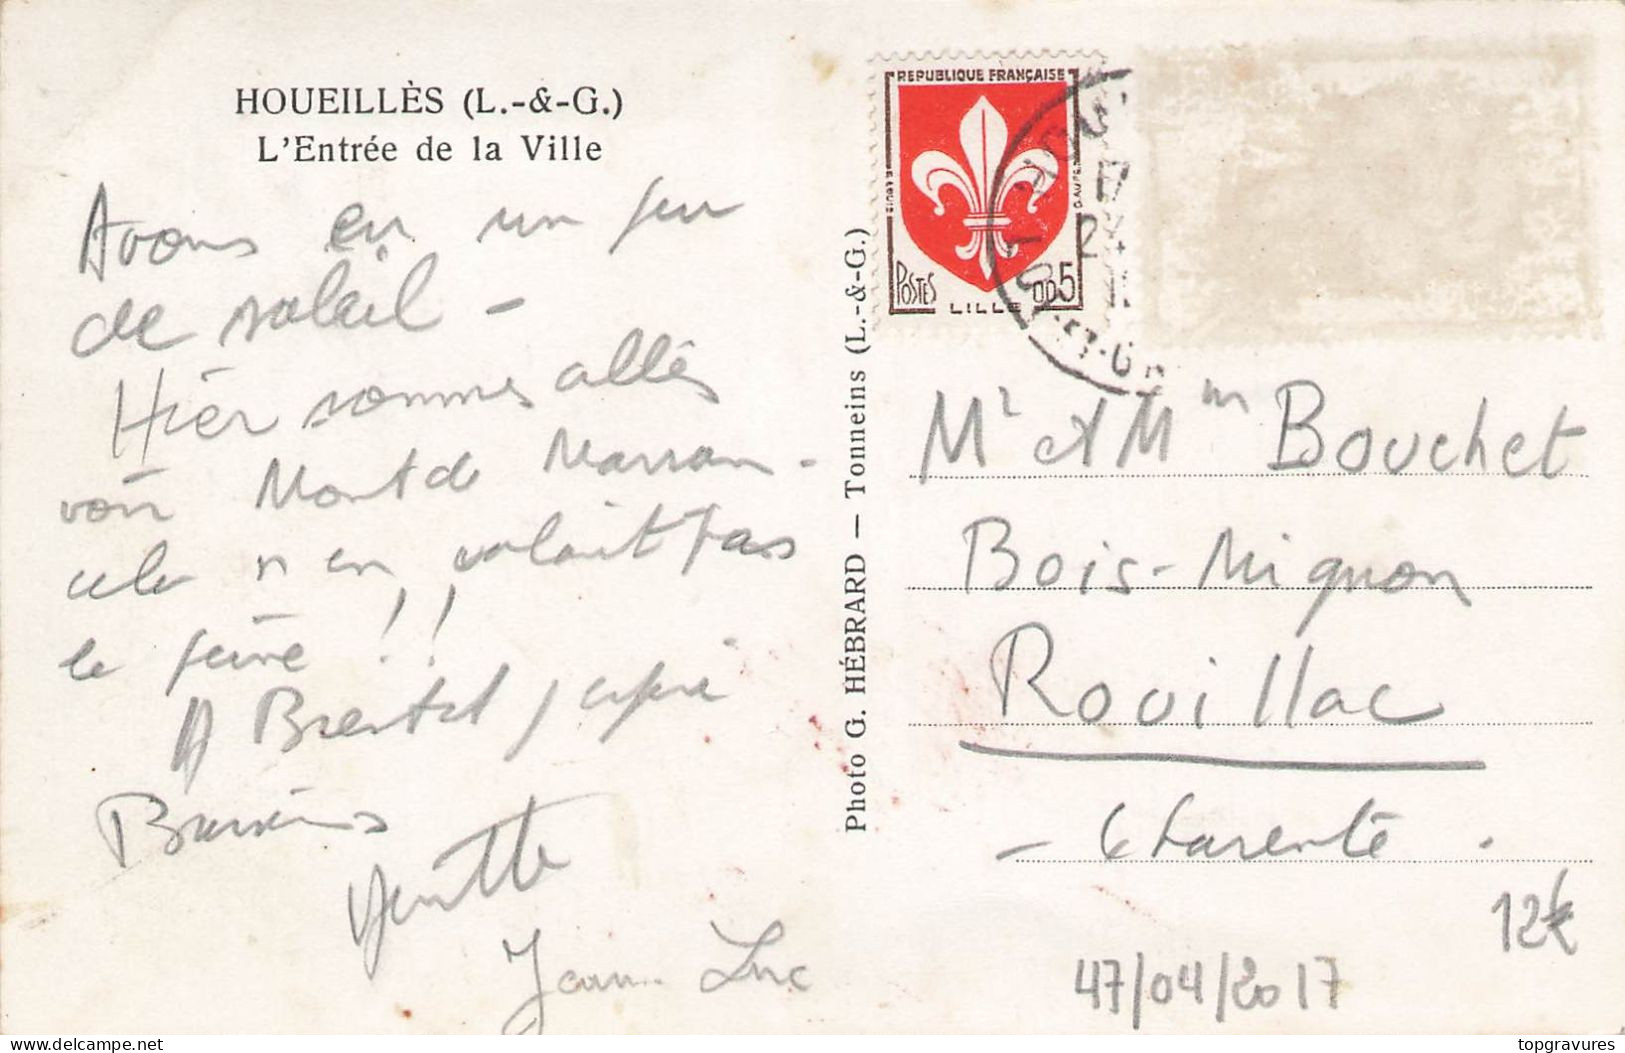 HOUEILLÈS (L.-&-G.)
L'Entrée de la Ville
Avons eu un peu
de soleil -
Hier sommes allés
voir Mont de Marsan -
cela n'en valait pas
la peine !!
A Bientot j'espère
Baisers
Jean Luc
Photo G. HÉBRARD — Tonneins (L.-&-G.)
REPUBLIQUE FRANÇAISE
POSTES
LILLE
0,05
Mr et Mme Bouchet
Bois-Mignon
Rouillac
- Charente .
12€
47/04/2017
topgravures